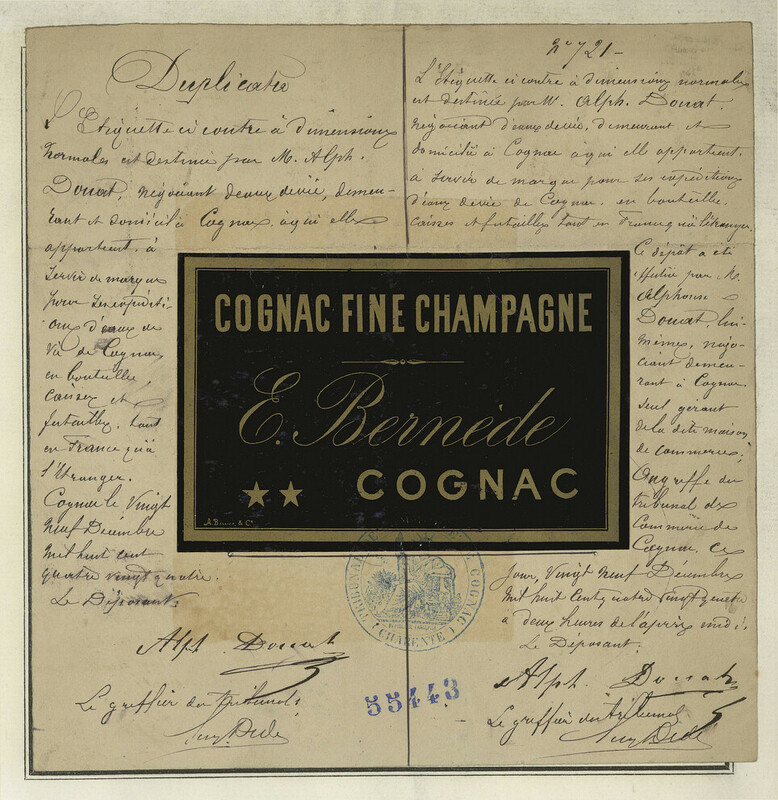 Duplicata
L'Etiquette ci contre à dimensions
normales est destinée par M. Alph.
Douat, négociant d'eaux de vie, demeu-
rant et domicilié à Cognac, à qui elle
appartient, à
servir de marque
pour ses expéditi-
ons d'eaux de
vie de Cognac,
en bouteilles,
caisses et
futailles, tant
en France qu'à
l'Etranger.
Cognac le Vingt
Neuf Décembre
Mil huit cent
quatre vingt quatre.
Le Déposant,
Alph. Douat
Le greffier du Tribunal
No 721-
L'Etiquette ci contre à dimensions normales
est destinée par M. Alph. Douat.
négociant d'eaux de vie, demeurant et
domicilié à Cognac à qui elle appartient.
à servir de marque pour ses expéditions
d'eaux de vie de Cognac. en bouteilles.
caisses et futailles tant en France qu'à l'étranger.
Ce dépôt a été
effectué par M.
Alphonse
Douat, lui-
même, négo-
ciant demeu-
rant à Cognac
seul gérant
de la dite maison
de commerce,
Au greffe du
tribunal de
Commerce de
Cognac, ce
jour, Vingt Neuf Décembre
Mil huit cent quatre vingt quatre
à deux heures de l'après midi.
Le Déposant.
Alph. Douat
Le greffier du tribunal
COGNAC FINE CHAMPAGNE
E. Bernède
COGNAC
TRIBUNAL DE COMMERCE DE COGNAC
(CHARENTE)
55443